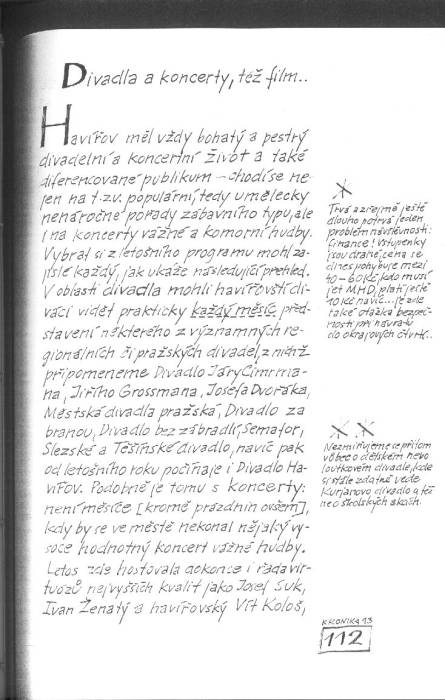 Divadla a koncerty, též film..
Havířov měl vždy bohatý a pestrý
divadelní a koncertní život a také
diferencované publikum - chodí se ne-
jen na t.zv. populární, tedy umělecky
nenáročné pořady zábavního typu, ale
i na koncerty vážné a komorní hudby.
Vybrat si z letošního programu mohl za-
jisté každý, jak ukáže následující přehled.
V oblasti divadla mohli havířovští di-
váci vidět prakticky každý měsíc před-
stavení některého z významných re-
gionálních či pražských divadel, z nichž
připomeneme Divadlo Járy Cimrma-
na, Jiřího Grossmana, Josefa Dvořáka,
Městská divadla pražská, Divadlo za
branou, Divadlo bez zábradlí, Semafor,
Slezské a Těšínské divadlo, navíc pak
od letošního roku počínaje i Divadlo Ha-
vířov. Podobně je tomu s koncerty:
není měsíce [kromě prázdnin ovšem],
kdy by se ve městě nekonal nějaký vy-
soce hodnotný koncert vážné hudby.
Letos zde hostovala dokonce i řada vir-
tuozů nejvyšších kvalit jako Josef Suk,
Ivan Ženatý a havířovský Vít Kološ,
Trvá a zřejmě ještě
dlouho potrvá jeden
problém návštěvnosti:
finance! Vstupenky
jsou drahé, cena se
dnes pohybuje mezi
40-60 Kč, kdo musí
jet MHD, platí ještě
10 Kč navíc... je zde
také otázka bezpeč-
nosti při návratu
do okrajových čtvrtí..
Nezmiňujeme se přitom
vůbec o dětském nebo
loutkovém divadle, kde
si stále zdatně vede
divadlo a též
na školských akcích.
KRONIKA 93
112